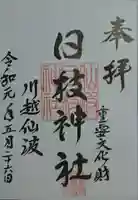 奉拝
重要文化財
日枝神社
川越仙波
令和元年五月二十六日